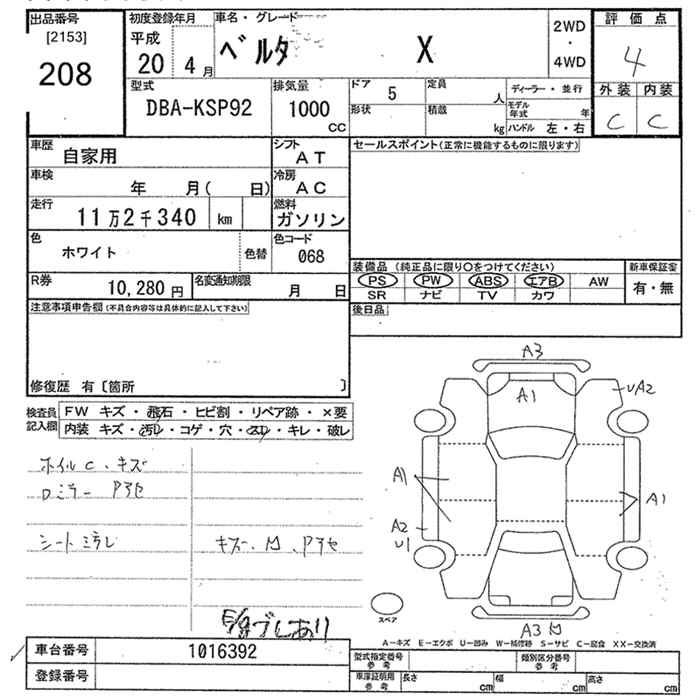 出品番号
[2153]
208
初度登録年月
平成
20 4月
車名・グレード
ベルタ X
2WD
・
4WD
評価点
4
外装 内装
C C
型式
DBA-KSP92
排気量
1000
CC
ドア 5
形状
定員 人
積載 kg
ディーラー・並行
モデル年式 年
ハンドル 左・右
車歴
自家用
シフト
AT
車検
年 月( 日)
冷房
AC
走行
11万2千340 km
燃料
ガソリン
色
ホワイト
色替
色コード
068
R券
10,280円
名変通知期限
月 日
セールスポイント(正常に機能するものに限ります)
装備品 (純正品に限り〇をつけてください)
新車保証書
PS PW ABS エアB AW
SR ナビ TV カワ
有・無
後日品
注意事項申告欄(不具合内容等は具体的に記入して下さい)
修復歴 有〔箇所 〕
検査員
記入欄
FW キズ・飛石・ヒビ割・リペア跡・×要
内装 キズ・汚レ・コゲ・穴・スレ・キレ・破レ
ホイルC、キズ
ロミラー
シート
キズ
A3
A1
UA2
A1
A1
A2
U1
A3
スペア
A-キズ E-エクボ U-凹み W-補修跡 S-サビ C-腐食 XX-交換済
車台番号
1016392
登録番号
型式指定番号
参考
類別区分番号
参考
車庫証明用
参考
長さ cm 幅 cm 高さ cm